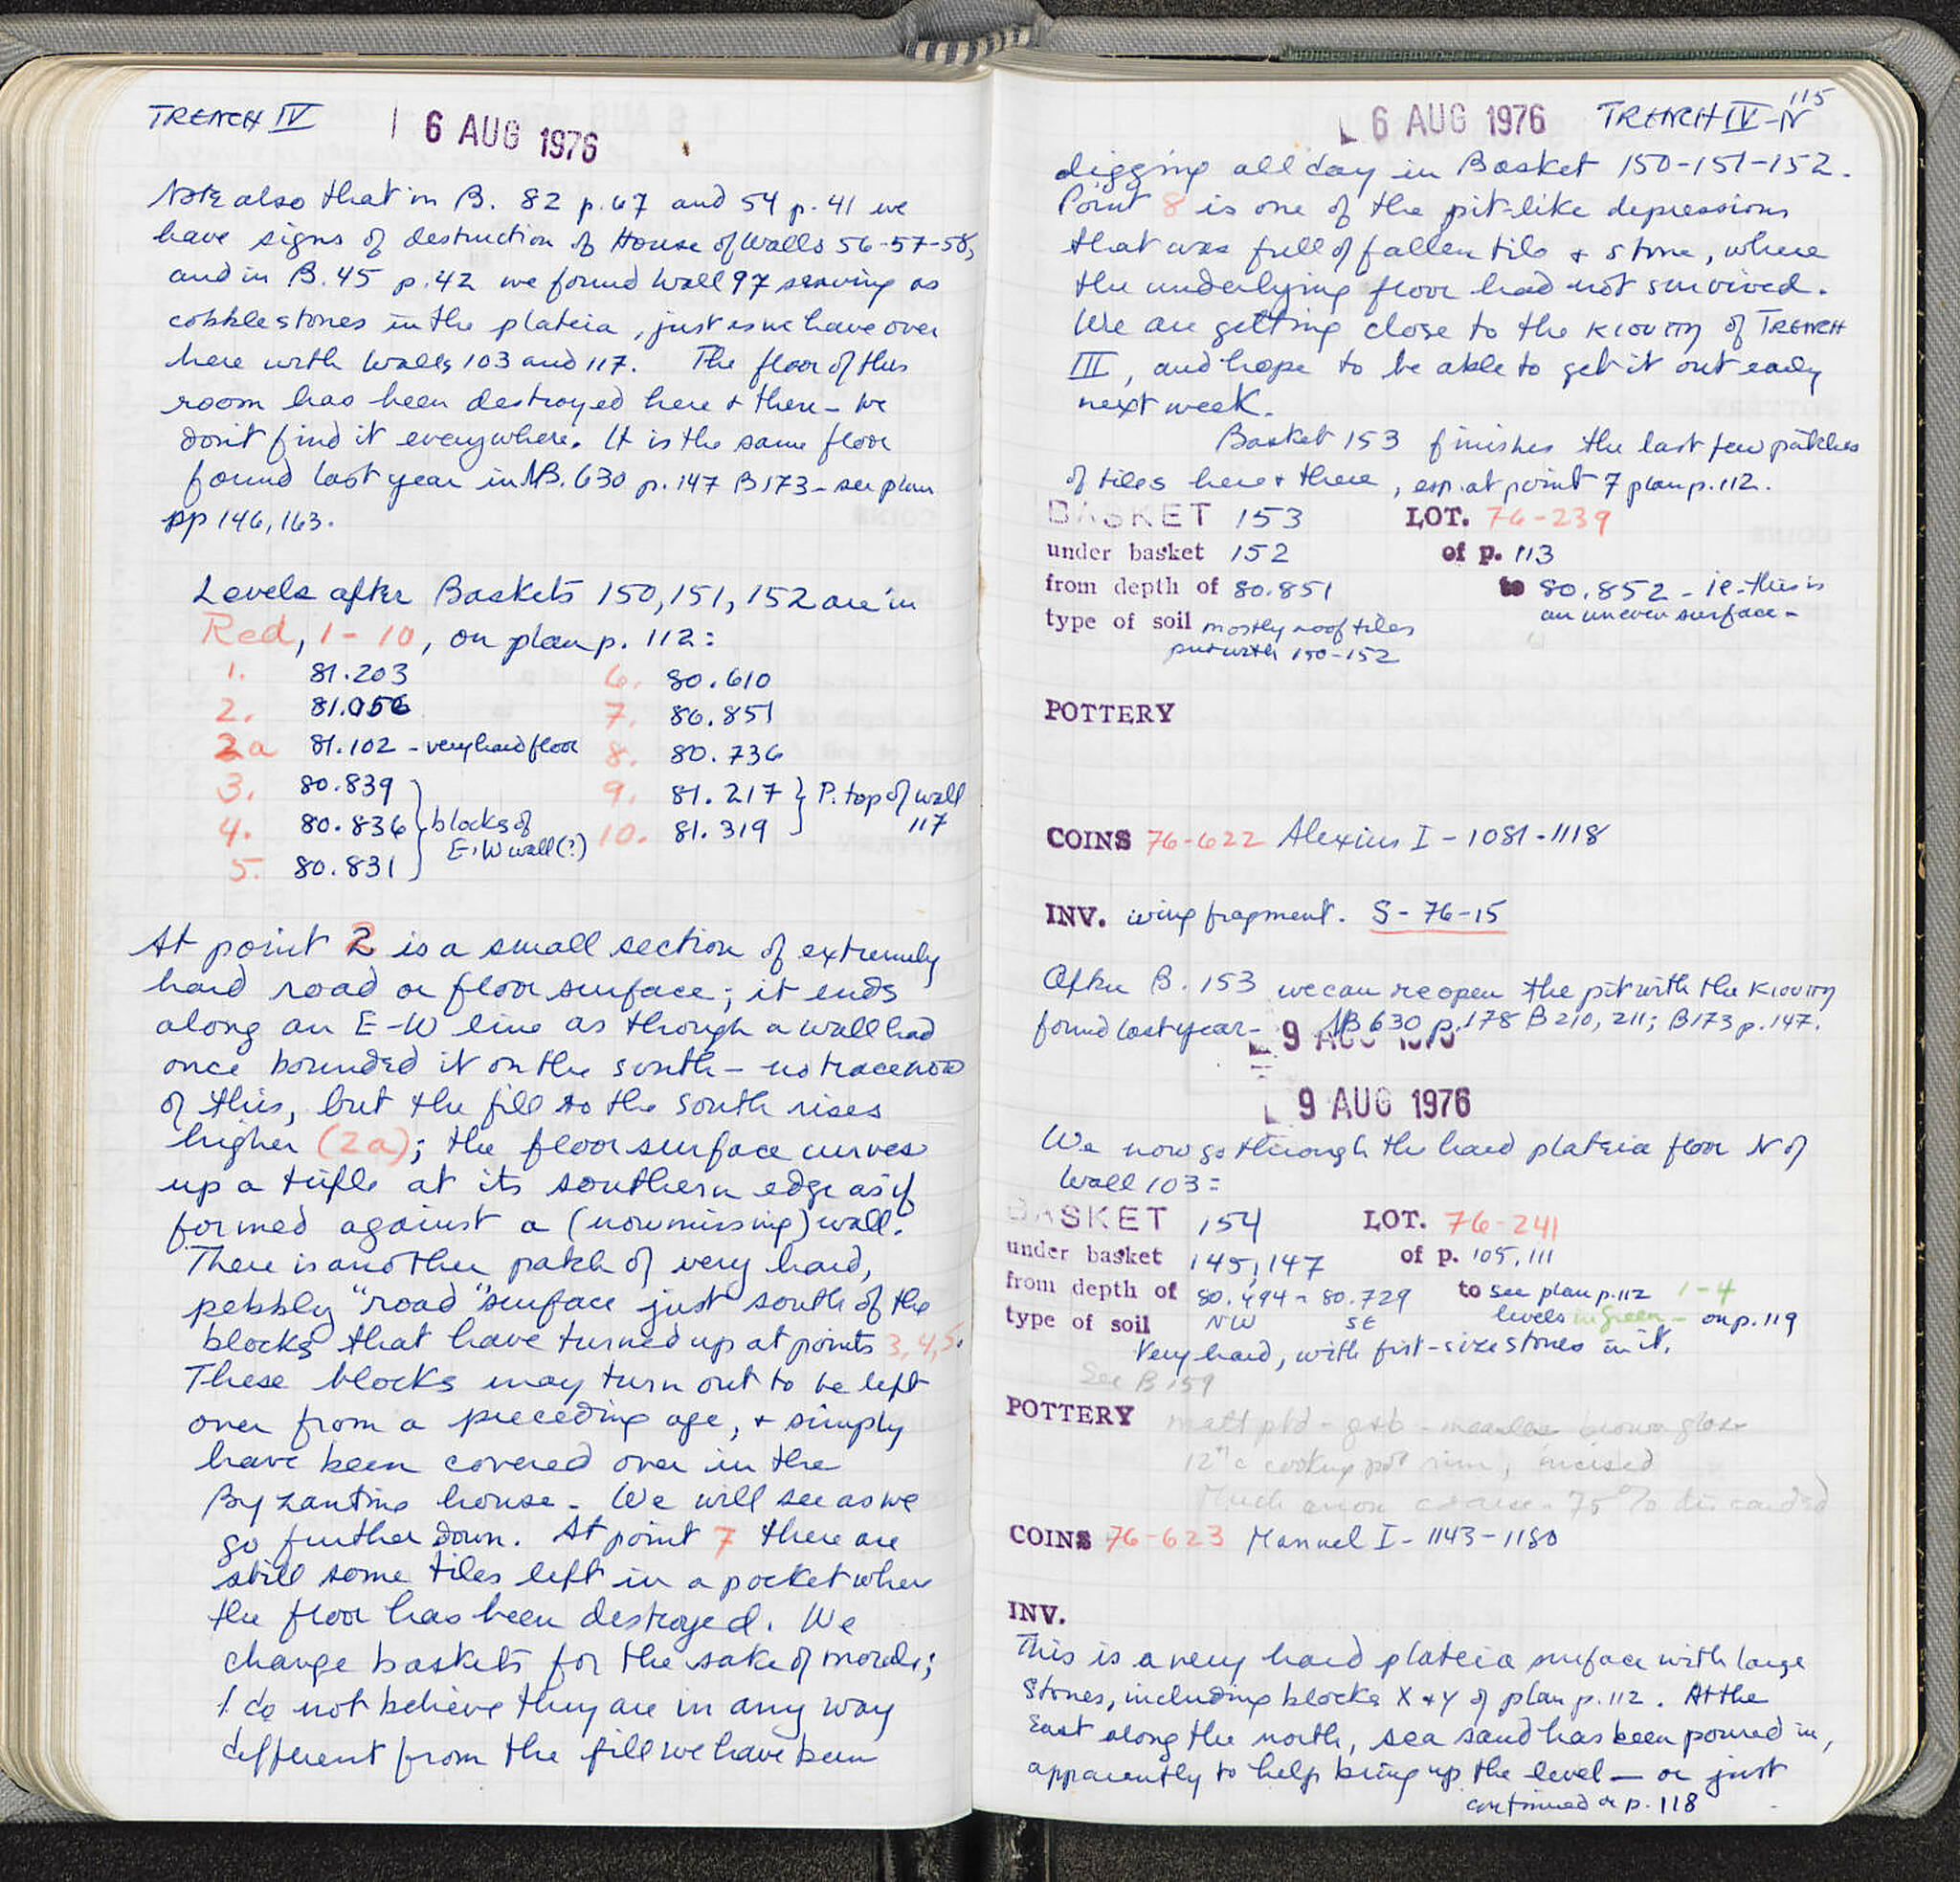 TRENCH IV
6 AUG 1976
Note also that in B. 82 p.67 and 54 p. 41 we
have signs of destruction of House of Walls 56-57-58,
and in B.45 p.42 we found Wall 97 serving as
cobblestones in the plateia, just as we have over
here with Walls 103 and 117. The floor of this
room has been destroyed here + there - we
don't find it everywhere. It is the same floor
found last year in NB. 630 p.147 B173 - see plan
pp 146, 163.
Levels after Baskets 150, 151, 152 are in
Red, 1-10, on plan p. 112:
1. 81.203 6. 80.610
2. 81.056 7. 80.851
2a 81.102 - very hard floor 8. 80.736
3. 80.839 9. 81.217 } P. top of wall
4. 80.836 } blocks of 10. 81.319 117
5. 80.831 E-W wall (?)
At point 2 is a small section of extremely
hard road or floor surface; it ends
along an E-W line as though a wall had
once bounded it on the south - no trace now
of this, but the fill to the south rises
higher (2a); the floor surface curves
up a trifle at its southern edge as if
formed against a (now missing) wall.
There is another patch of very hard,
pebbly "road" surface just south of the
blocks that have turned up at points 3, 4, 5.
These blocks may turn out to be left
over from a preceding age, + simply
have been covered over in the
Byzantine house. We will see as we
go further down. At point 7 there are
still some tiles left in a pocket where
the floor has been destroyed. We
change baskets for the sake of morale;
I do not believe they are in any way
different from the fill we have been
115
6 AUG 1976 TRENCH IV-N
digging all day in Basket 150-151-152.
Point 8 is one of the pit-like depressions
that was full of fallen tile + stone, where
the underlying floor had not survived.
We are getting close to the κιουπη of TRENCH
III, and hope to be able to get it out early
next week.
Basket 153 finishes the last few patches
of tiles here + there, esp. at point 7 plan p. 112.
BASKET 153 LOT. 76-239
under basket 152 of p. 113
from depth of 80.851 to 80.852 - ie. this is
an uneven surface -
type of soil mostly roof tiles
put with 150-152
POTTERY
COINS 76-622 Alexius I - 1081-1118
INV. wing fragment. S-76-15
After B. 153 we can reopen the pit with the κιουπη
found last year - NB 630 p.178 B 210, 211; B173 p.147.
9 AUG 1976
9 AUG 1976
We now go through the hard plateia floor N of
Wall 103:
BASKET 154 LOT. 76-241
under basket 145, 147 of p. 105, 111
from depth of 80.494 - 80.729 to see plan p.112 1-4
NW SE levels in green - on p. 119
type of soil
Very hard, with fist-size stones in it.
See B 159
POTTERY matt ptd - g+b - measles brown glaze
12th c cooking pot rim, incised
Much coarse - 75% discarded
COINS 76-623 Manuel I - 1143-1180
INV.
This is a very hard plateia surface with large
stones, including blocks X + Y of plan p. 112. At the
East along the north, sea sand has been poured in,
apparently to help bring up the level — or just
continued on p. 118